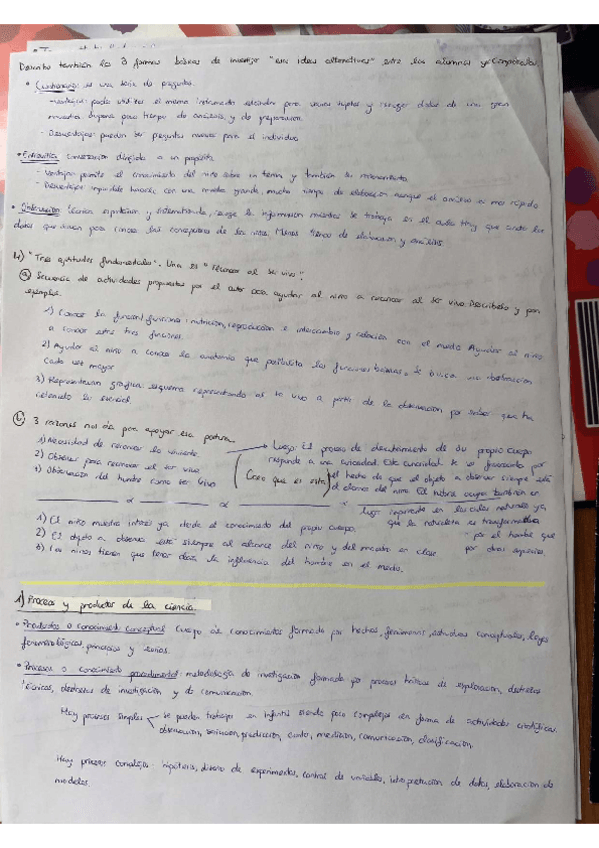 Describe también las 3 formas básicas de investigar "esas ideas alternativas" entre los alumnos y
• Cuestionario: es una serie de preguntas.
- Ventajas: puede utilizar el mismo instrumento estándar para varios sujetos y recoger datos de una gran
muestra poco tiempo de análisis y de preparación.
- Desventajas: pueden ser preguntas nuevas para el individuo
• Entrevista: conversación dirigida a un propósito
- Ventajas: permite el conocimiento del niño sobre un tema y también su razonamiento.
- Desventajas: imposible hacerlo con una muestra grande, mucho tiempo de elaboración aunque el análisis es más rápido
• Observación: técnica espontánea y sistematizada, recoge la información mientras se trabaja en el aula. Hay que anotar los
datos que sirven para conocer las concepciones de los niños. Menos tiempo de elaboración y análisis.
4) "Tres aptitudes fundamentales". Una es "reconocer al ser vivo".
a) Secuencia de actividades propuestas por el autor para ayudar al niño a reconocer al ser vivo. Descríbela y pon
ejemplos.
1) Conocer la función/funciones: nutrición, reproducción e intercambio y relación con el medio. Ayudar al niño
a conocer estas tres funciones.
2) Ayudar al niño a conocer la anatomía que posibilita las funciones básicas, se busca una abstracción
cada vez mayor
3) Representación gráfica: esquema representando al ser vivo a partir de la observación para saber que ha
retenido lo esencial.
b) 3 razones nos da para apoyar esa postura.
1) Necesidad de reconocer lo viviente
2) Observar para reconocer al ser vivo
3) Observación del hombre como ser vivo
(Creo que es esta)
Luego: El proceso de descubrimiento de su propio cuerpo
responde a una curiosidad. Esta curiosidad se ve favorecida por
el hecho de que el objeto a observar siempre está
al alcance del niño. El hombre ocupa también un
lugar importante en los ciclos naturales ya
que la naturaleza es transformada
- por el hombre que
por otras especies.
1) El niño muestra interés ya desde el conocimiento del propio cuerpo.
2) El objeto a observar está siempre al alcance del niño y del maestro en clase
3) Los niños tienen que tener clara la influencia del hombre en el medio.
1) Procesos y productos de la ciencia.
• Productos o conocimiento conceptual: cuerpo de conocimientos formado por hechos, fenómenos, estructuras conceptuales, leyes
fenomenológicas, principios y teorías.
• Procesos o conocimiento procedimental: metodología de investigación formado por procesos básicos de exploración, destrezas
técnicas, destrezas de investigación y de comunicación.
Hay procesos simples - se pueden trabajar en infantil siendo poco complejos en forma de actividades científicas:
observación, predicción, medición, comunicación, clasificación.
Hay procesos complejos - hipótesis, diseño de experimentos, control de variables, interpretación de datos, elaboración de
modelos.